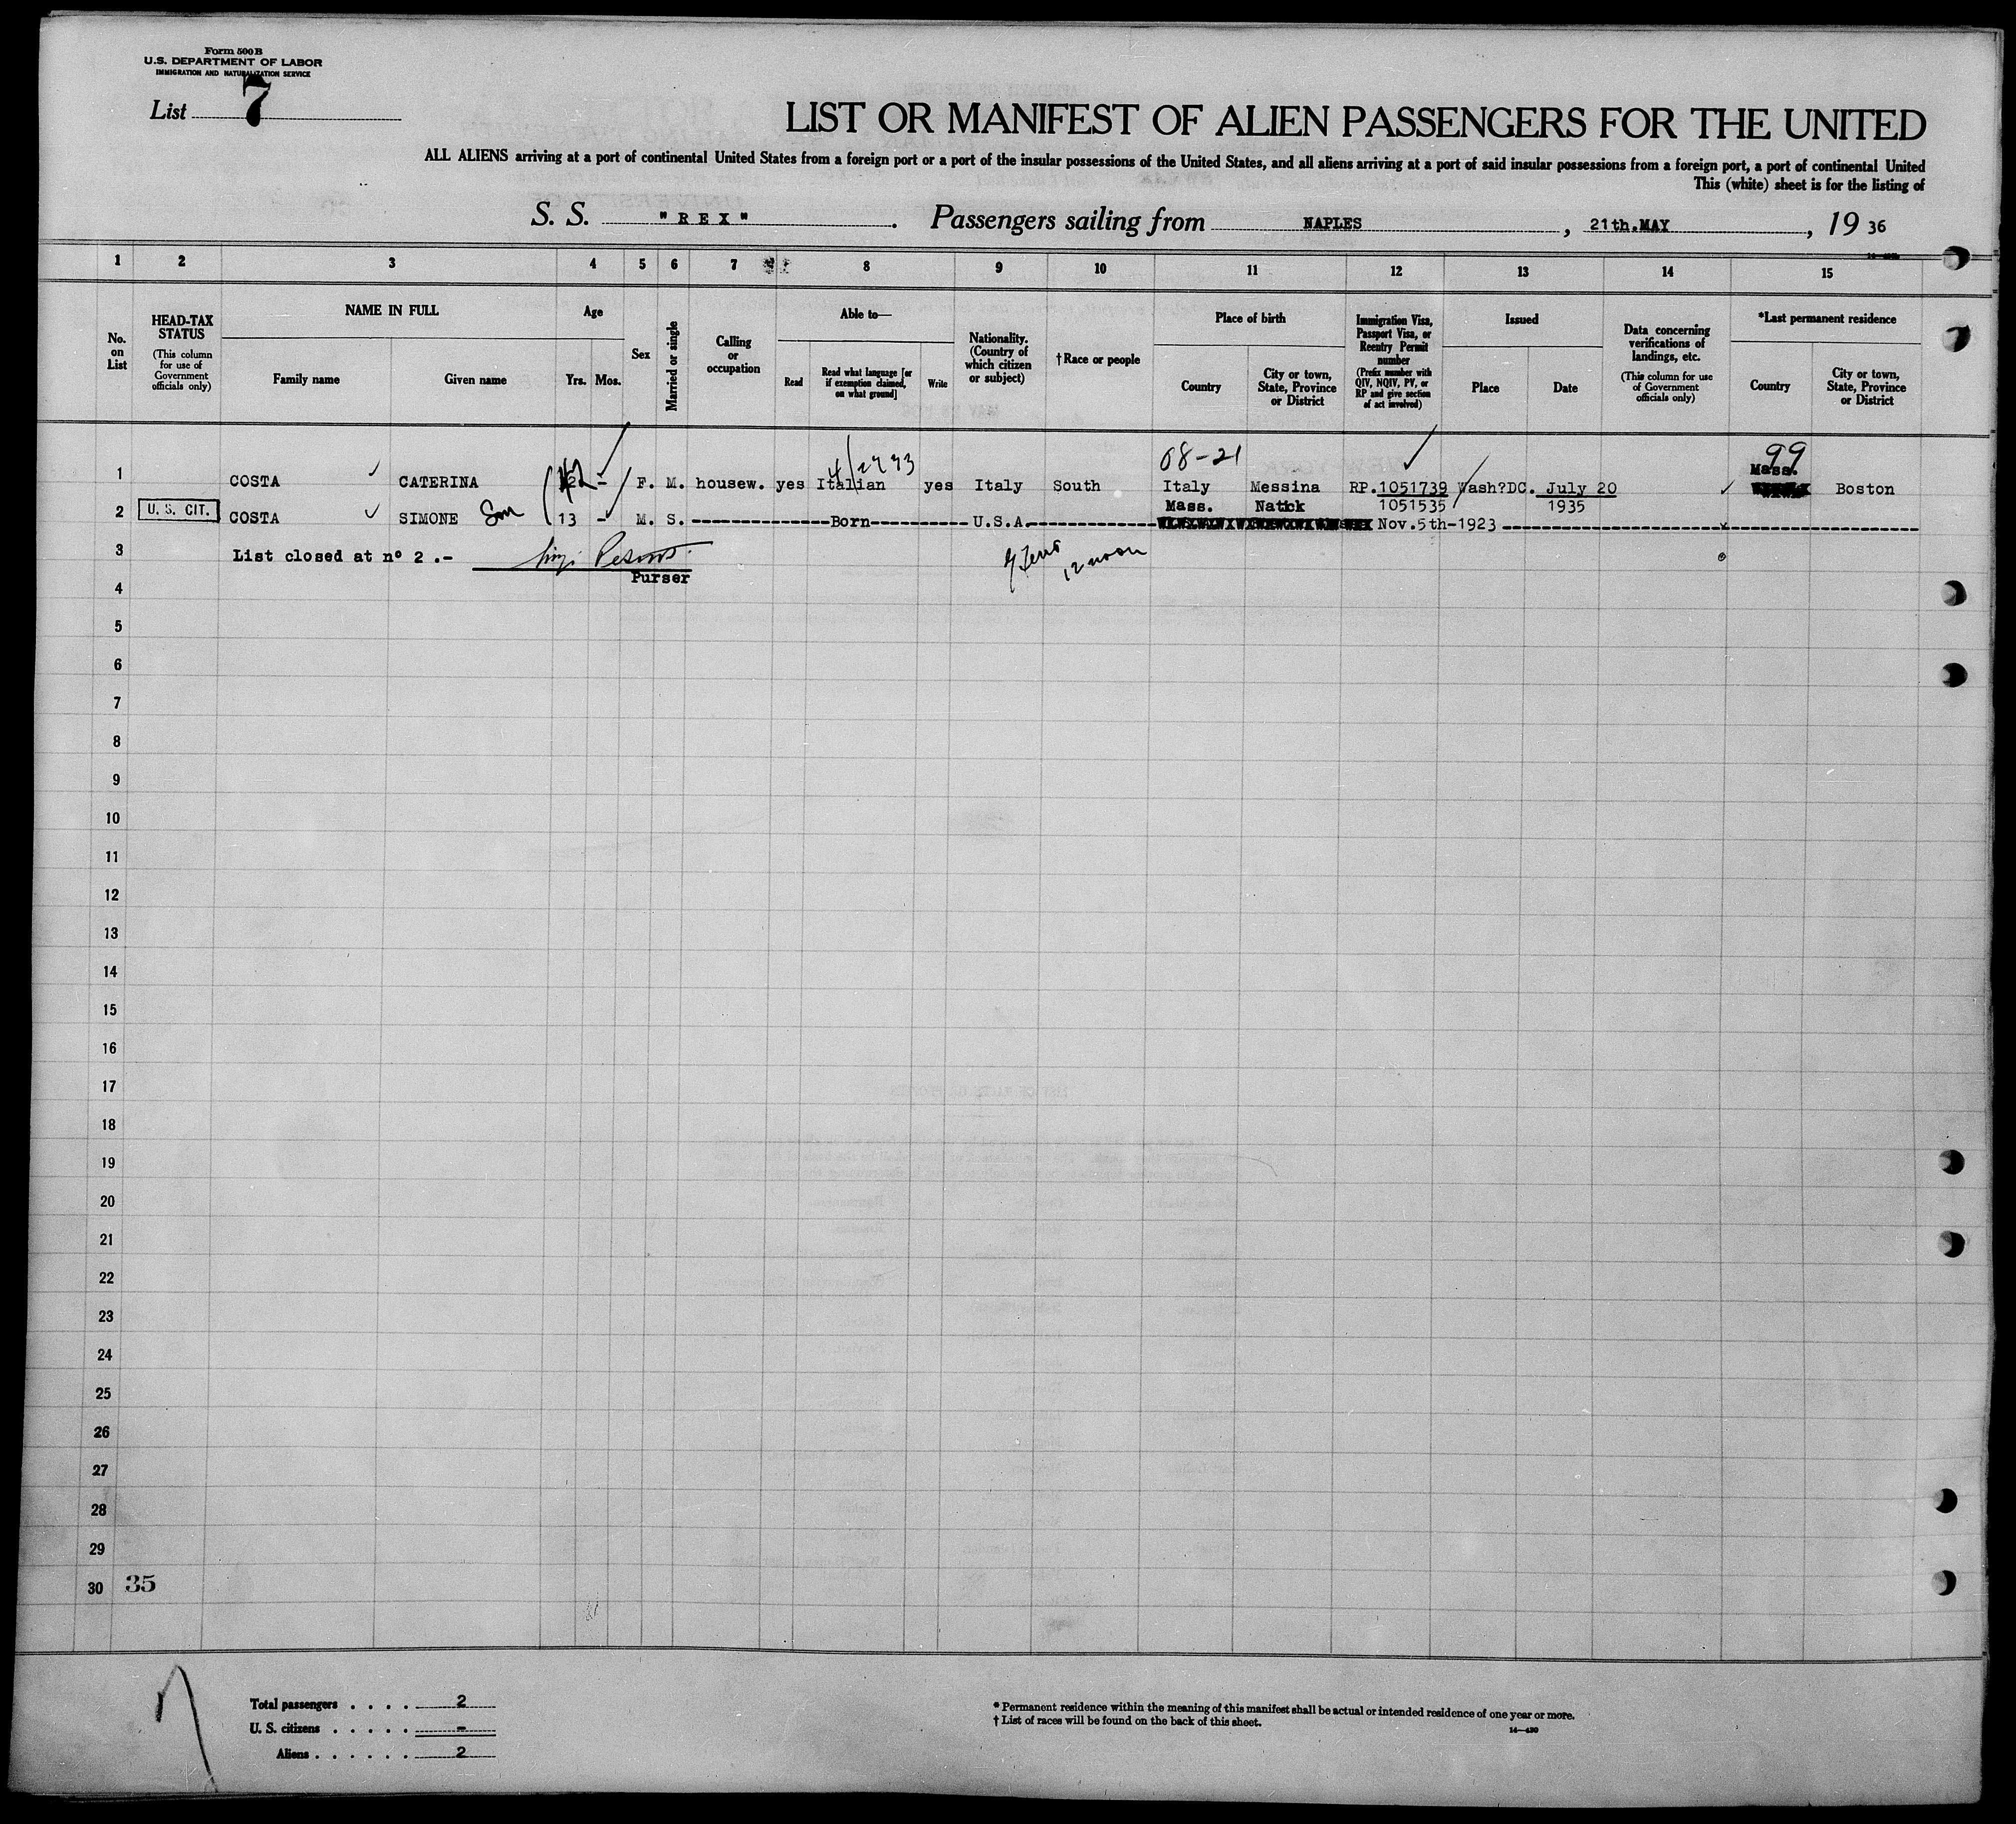 Form 500 B
U.S. DEPARTMENT OF LABOR
IMMIGRATION AND NATURALIZATION SERVICE
List 7
LIST OR MANIFEST OF ALIEN PASSENGERS FOR THE UNITED
ALL ALIENS arriving at a port of continental United States from a foreign port or a port of the insular possessions of the United States, and all aliens arriving at a port of said insular possessions from a foreign port, a port of continental United
This (white) sheet is for the listing of
S. S. "REX". Passengers sailing from NAPLES, 21th.MAY, 19 36
1 2 3 4 5 6 7 8 9 10 11 12 13 14 15
No. on List
HEAD-TAX STATUS
(This column for use of Government officials only)
NAME IN FULL
Family name Given name
Age
Yrs. Mos.
Sex
Married or single
Calling or occupation
Able to—
Read
Read what language [or if exemption claimed, on what ground]
Write
Nationality. (Country of which citizen or subject)
†Race or people
Place of birth
Country
City or town, State, Province or District
Immigration Visa, Passport Visa, or Reentry Permit number
(Prefix number with QIV, NQIV, PV, or RP and give section of act involved)
Issued
Place Date
Data concerning verifications of landings, etc.
(This column for use of Government officials only)
*Last permanent residence
Country
City or town, State, Province or District
08-21 99
Mass.
1 COSTA CATERINA 42 - F. M. housew. yes Italian yes Italy South Italy Messina RP.1051739 Wash?DC. July 20 Boston
U. S. CIT. Mass. Natick 1051535 1935
2 COSTA SIMONE Son 13 - M. S. Born U.S.A. Nov.5th-1923
3 List closed at n° 2 .-
12 noon
Purser
4
5
6
7
8
9
10
11
12
13
14
15
16
17
18
19
20
21
22
23
24
25
26
27
28
29
30 35
Total passengers . . . . 2
U. S. citizens . . . . . -
Aliens . . . . . . 2
* Permanent residence within the meaning of this manifest shall be actual or intended residence of one year or more.
† List of races will be found on the back of this sheet.
14—430